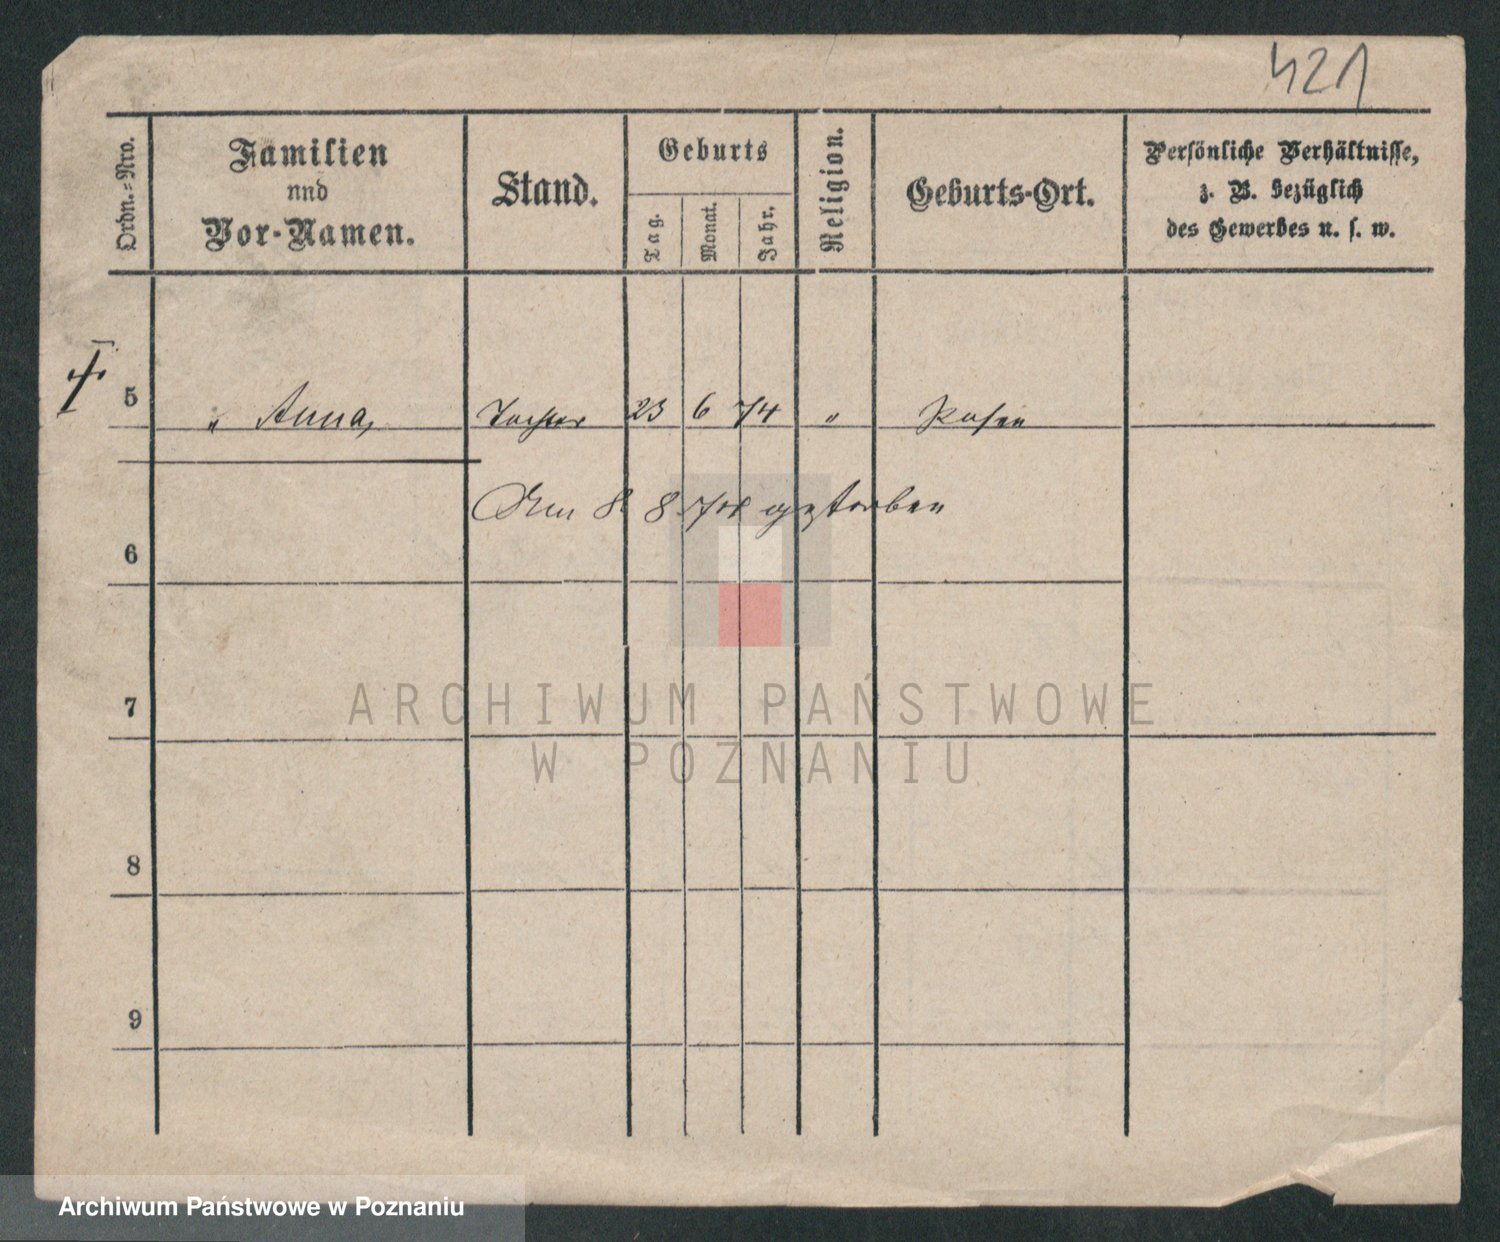 421
Ordn.=Nro.
Familien
und
Vor-Namen.
Stand.
Geburts
Tag.
Monat.
Jahr.
Religion.
Geburts-Ort.
Persönliche Verhältnisse,
z. B. bezüglich
des Gewerbes u. s. w.
5 " Anna, Tochter 23 6 74 " Posen
Am 8 8 74 gestorben
6
7
8
9
ARCHIWUM PAŃSTWOWE
W POZNANIU
Archiwum Państwowe w Poznaniu